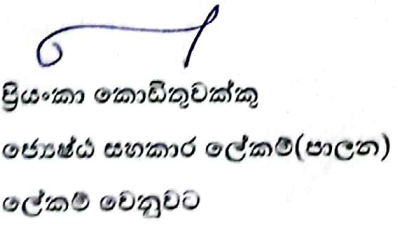 ප්‍රියංකා කොඩිතුවක්කු
ජ්‍යෙෂ්ඨ සහකාර ලේකම්(පාලන)
ලේකම් වෙනුවට